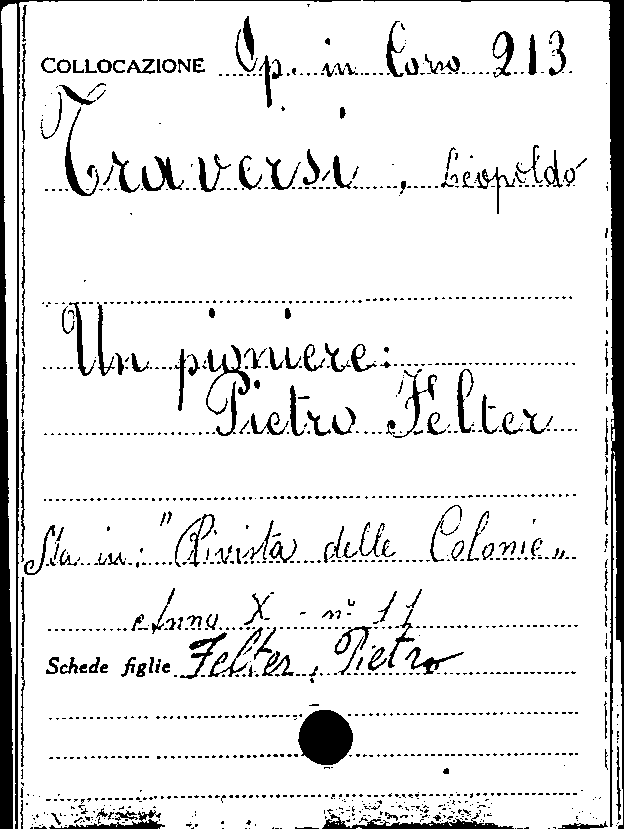 COLLOCAZIONE Op. in Corso 213
Traversi, Leopoldo
Un pioniere:
Pietro Felter
Sta in: "Rivista delle Colonie„
Anno X - n° 11
Schede figlie Felter, Pietro